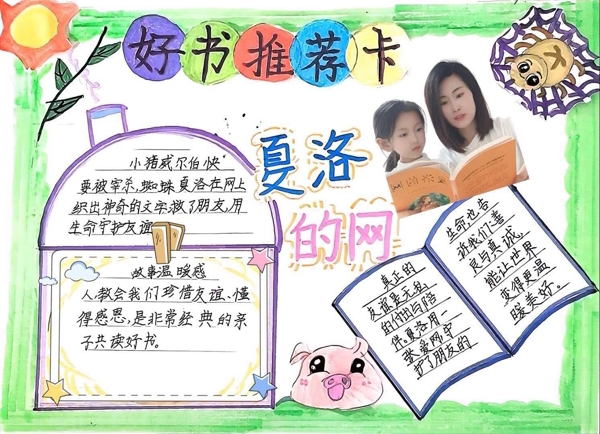 好书推荐卡
夏洛
的网
小猪威尔伯快
要被宰杀，蜘蛛夏洛在网上
织出神奇的文字救了朋友，用
生命守护友谊
故事温暖感
人教会我们珍惜友谊、懂
得感恩，是非常经典的亲
子共读好书。
真正的
友谊是无私
的付出与陪
伴。夏洛用一
张爱网守
护了朋友的
生命也告
诉我们：善
良与真诚
能让世界
变得更温
暖美好。